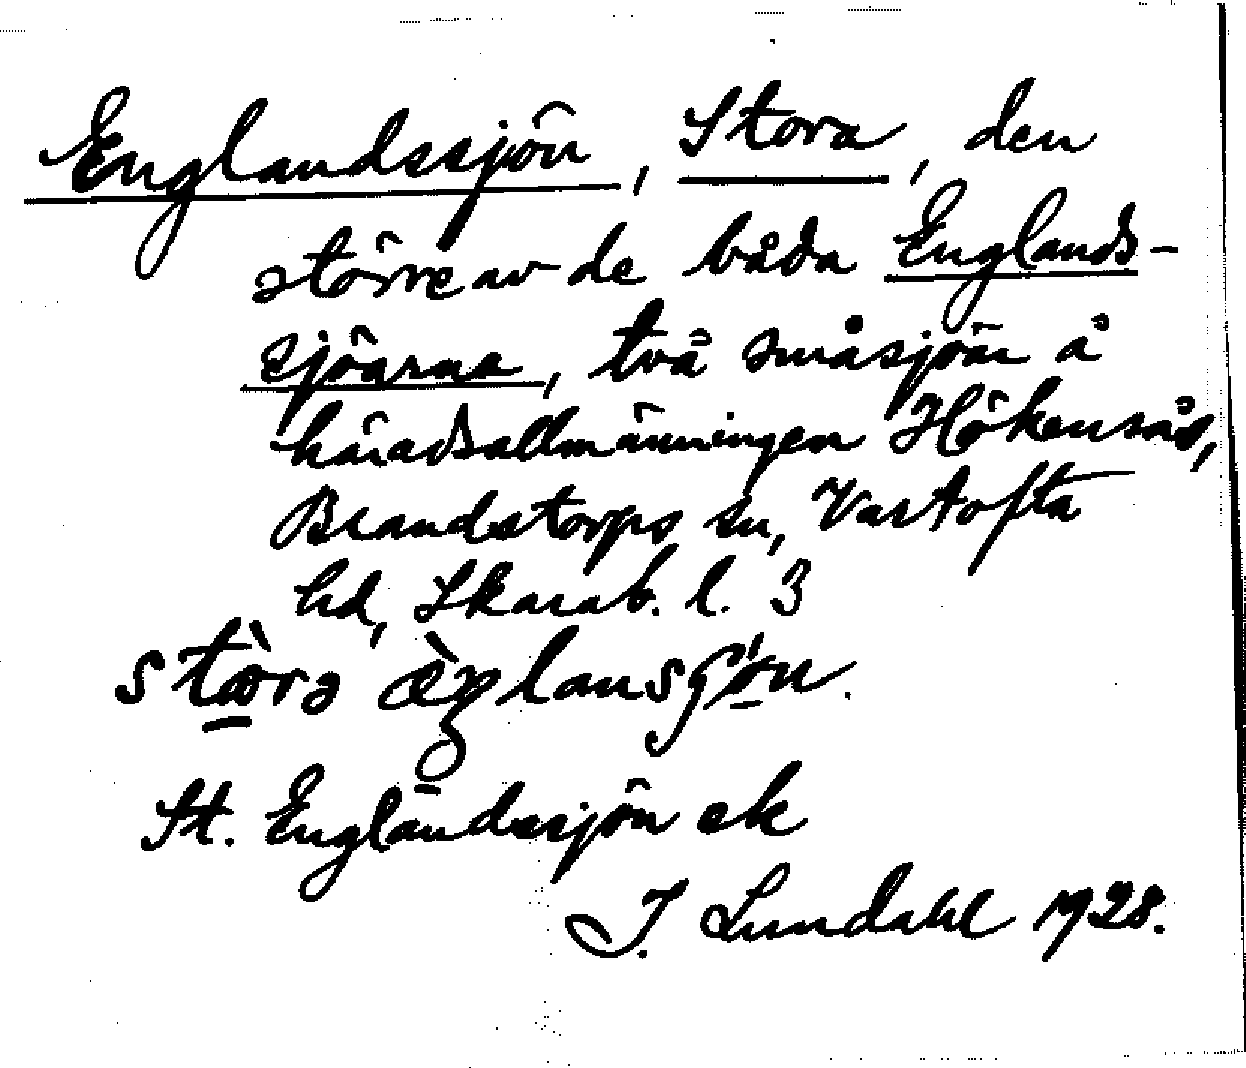 Englandssjön, Stora, den
större av de båda Englands-
sjöarna, två småsjöar å
häradsallmänningen Hökensås,
Brandstorps sn, Vartofta
hd, Skarab. l. 3
St. Englandssjön ek
I. Lundahl 1928.